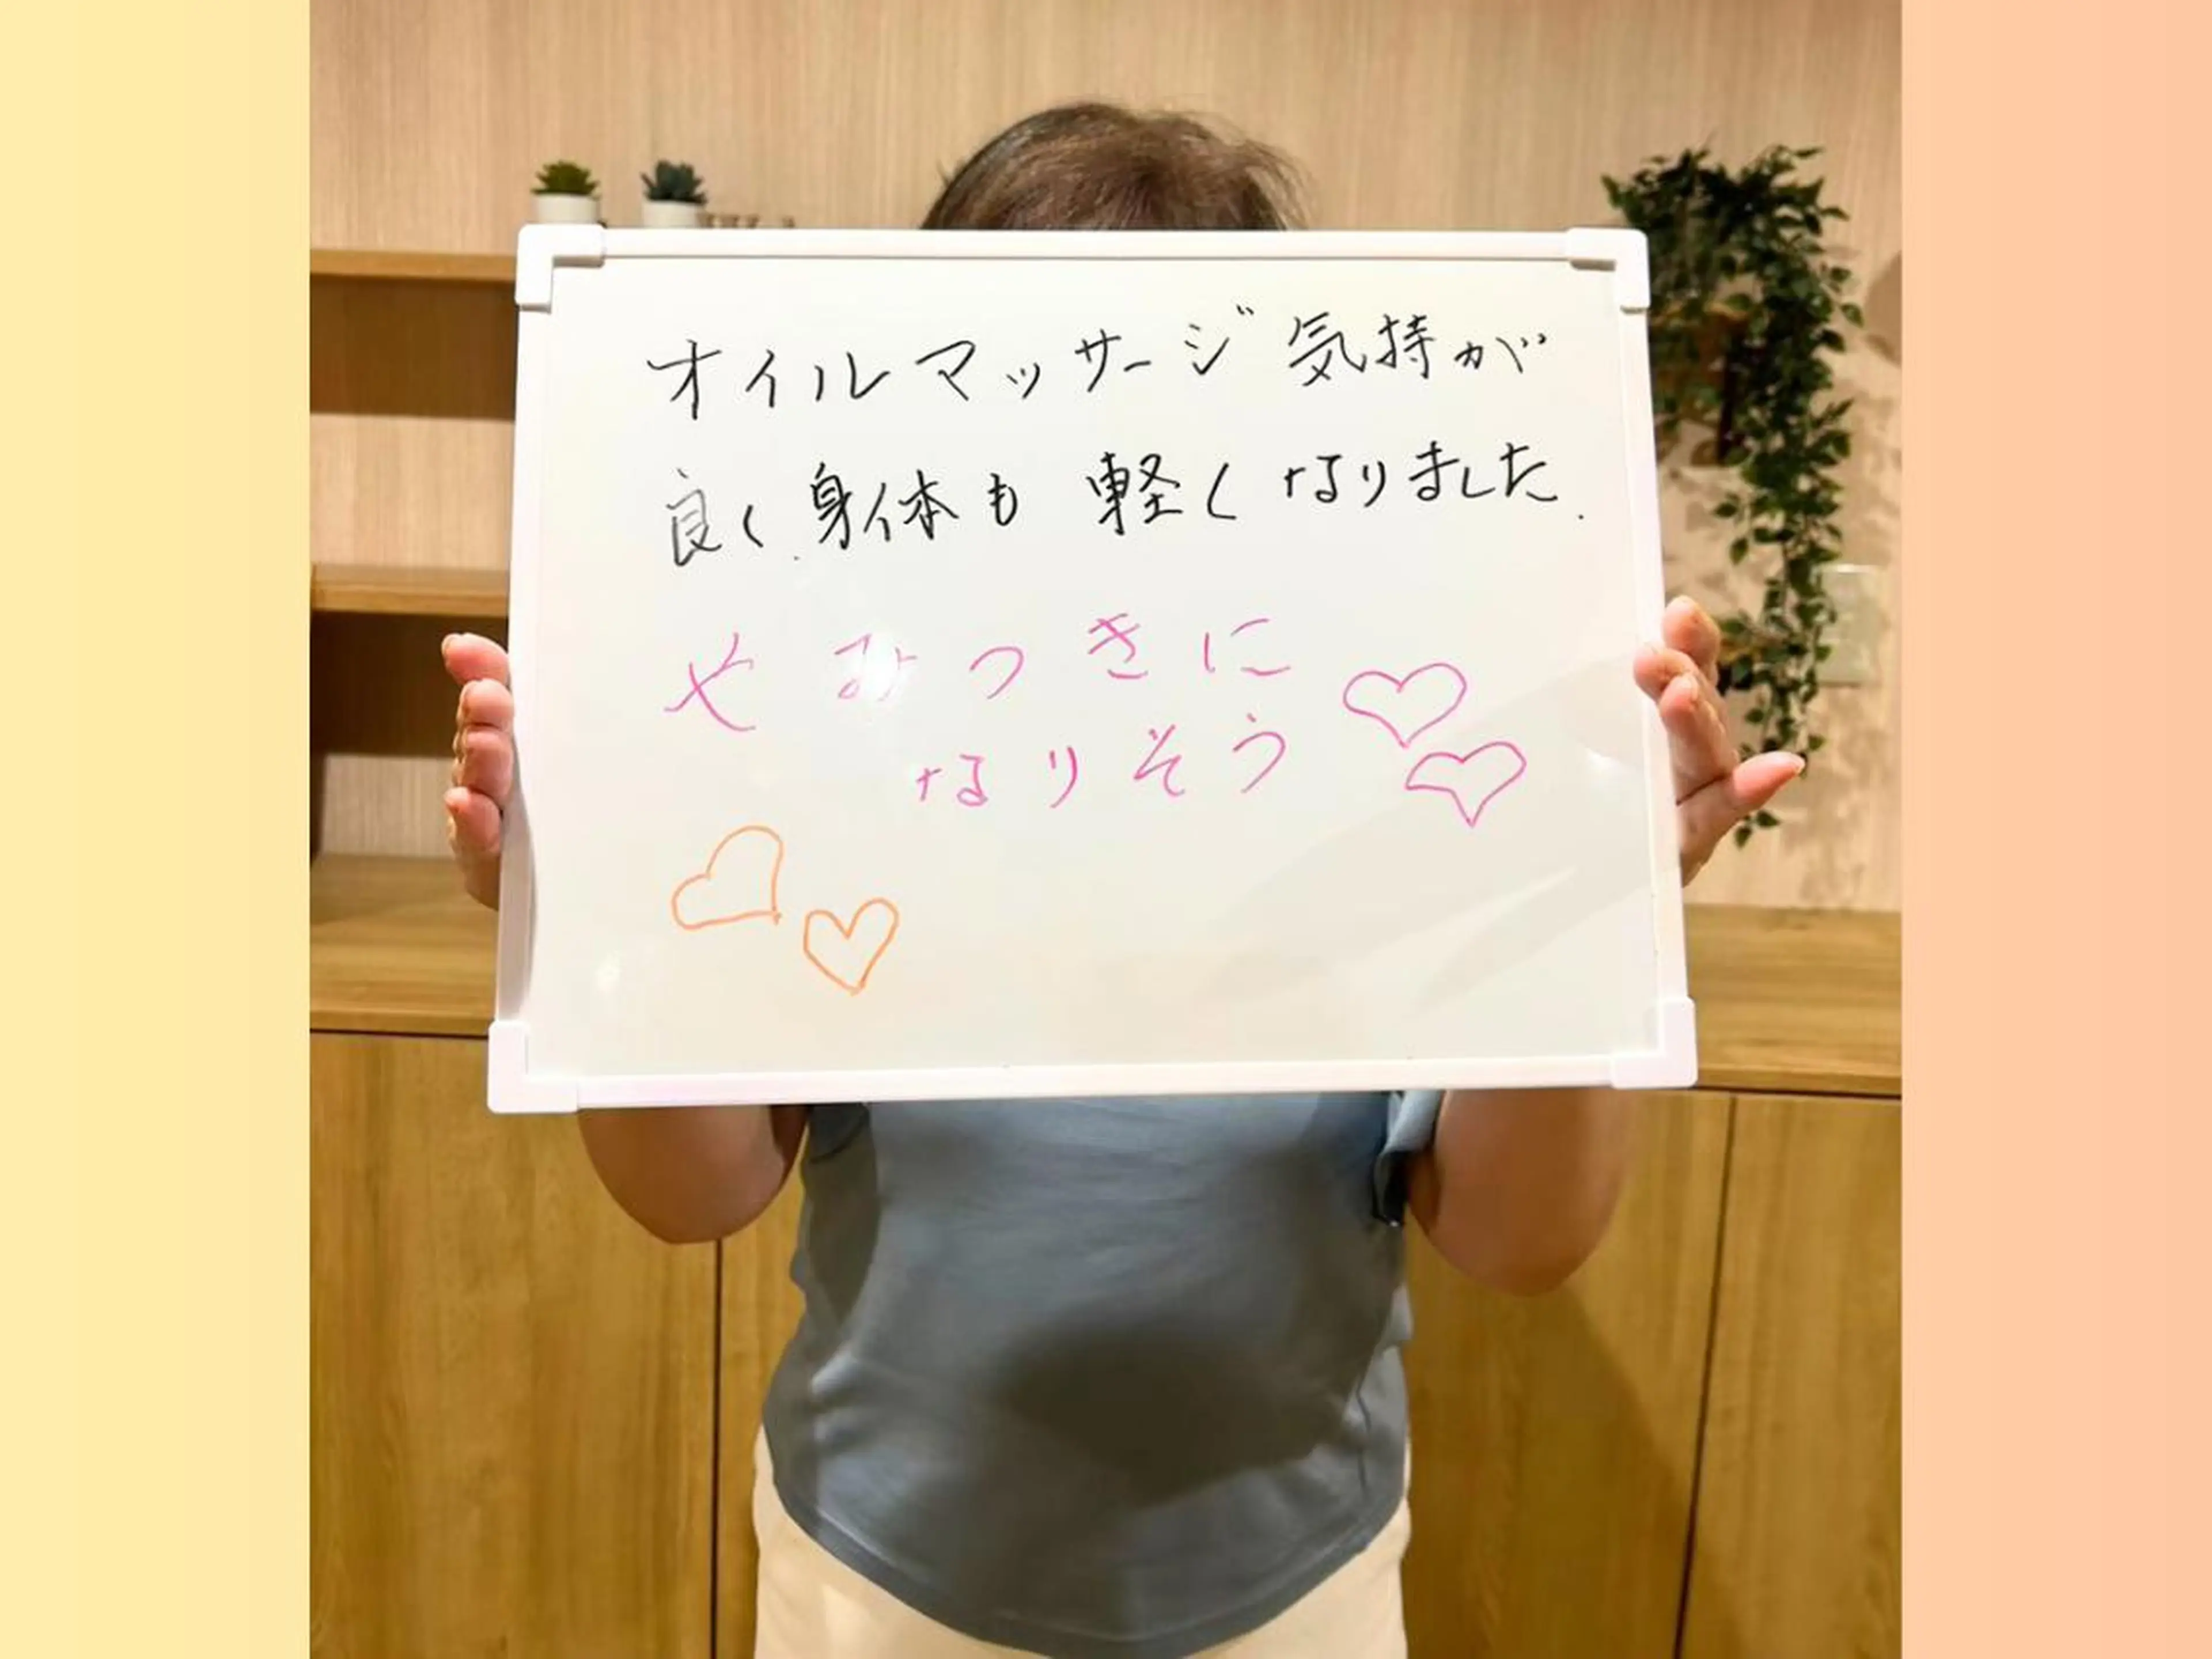 オイルマッサージ気持が
良く.身体も軽くなりました.
やみつきに
なりそう♡♡